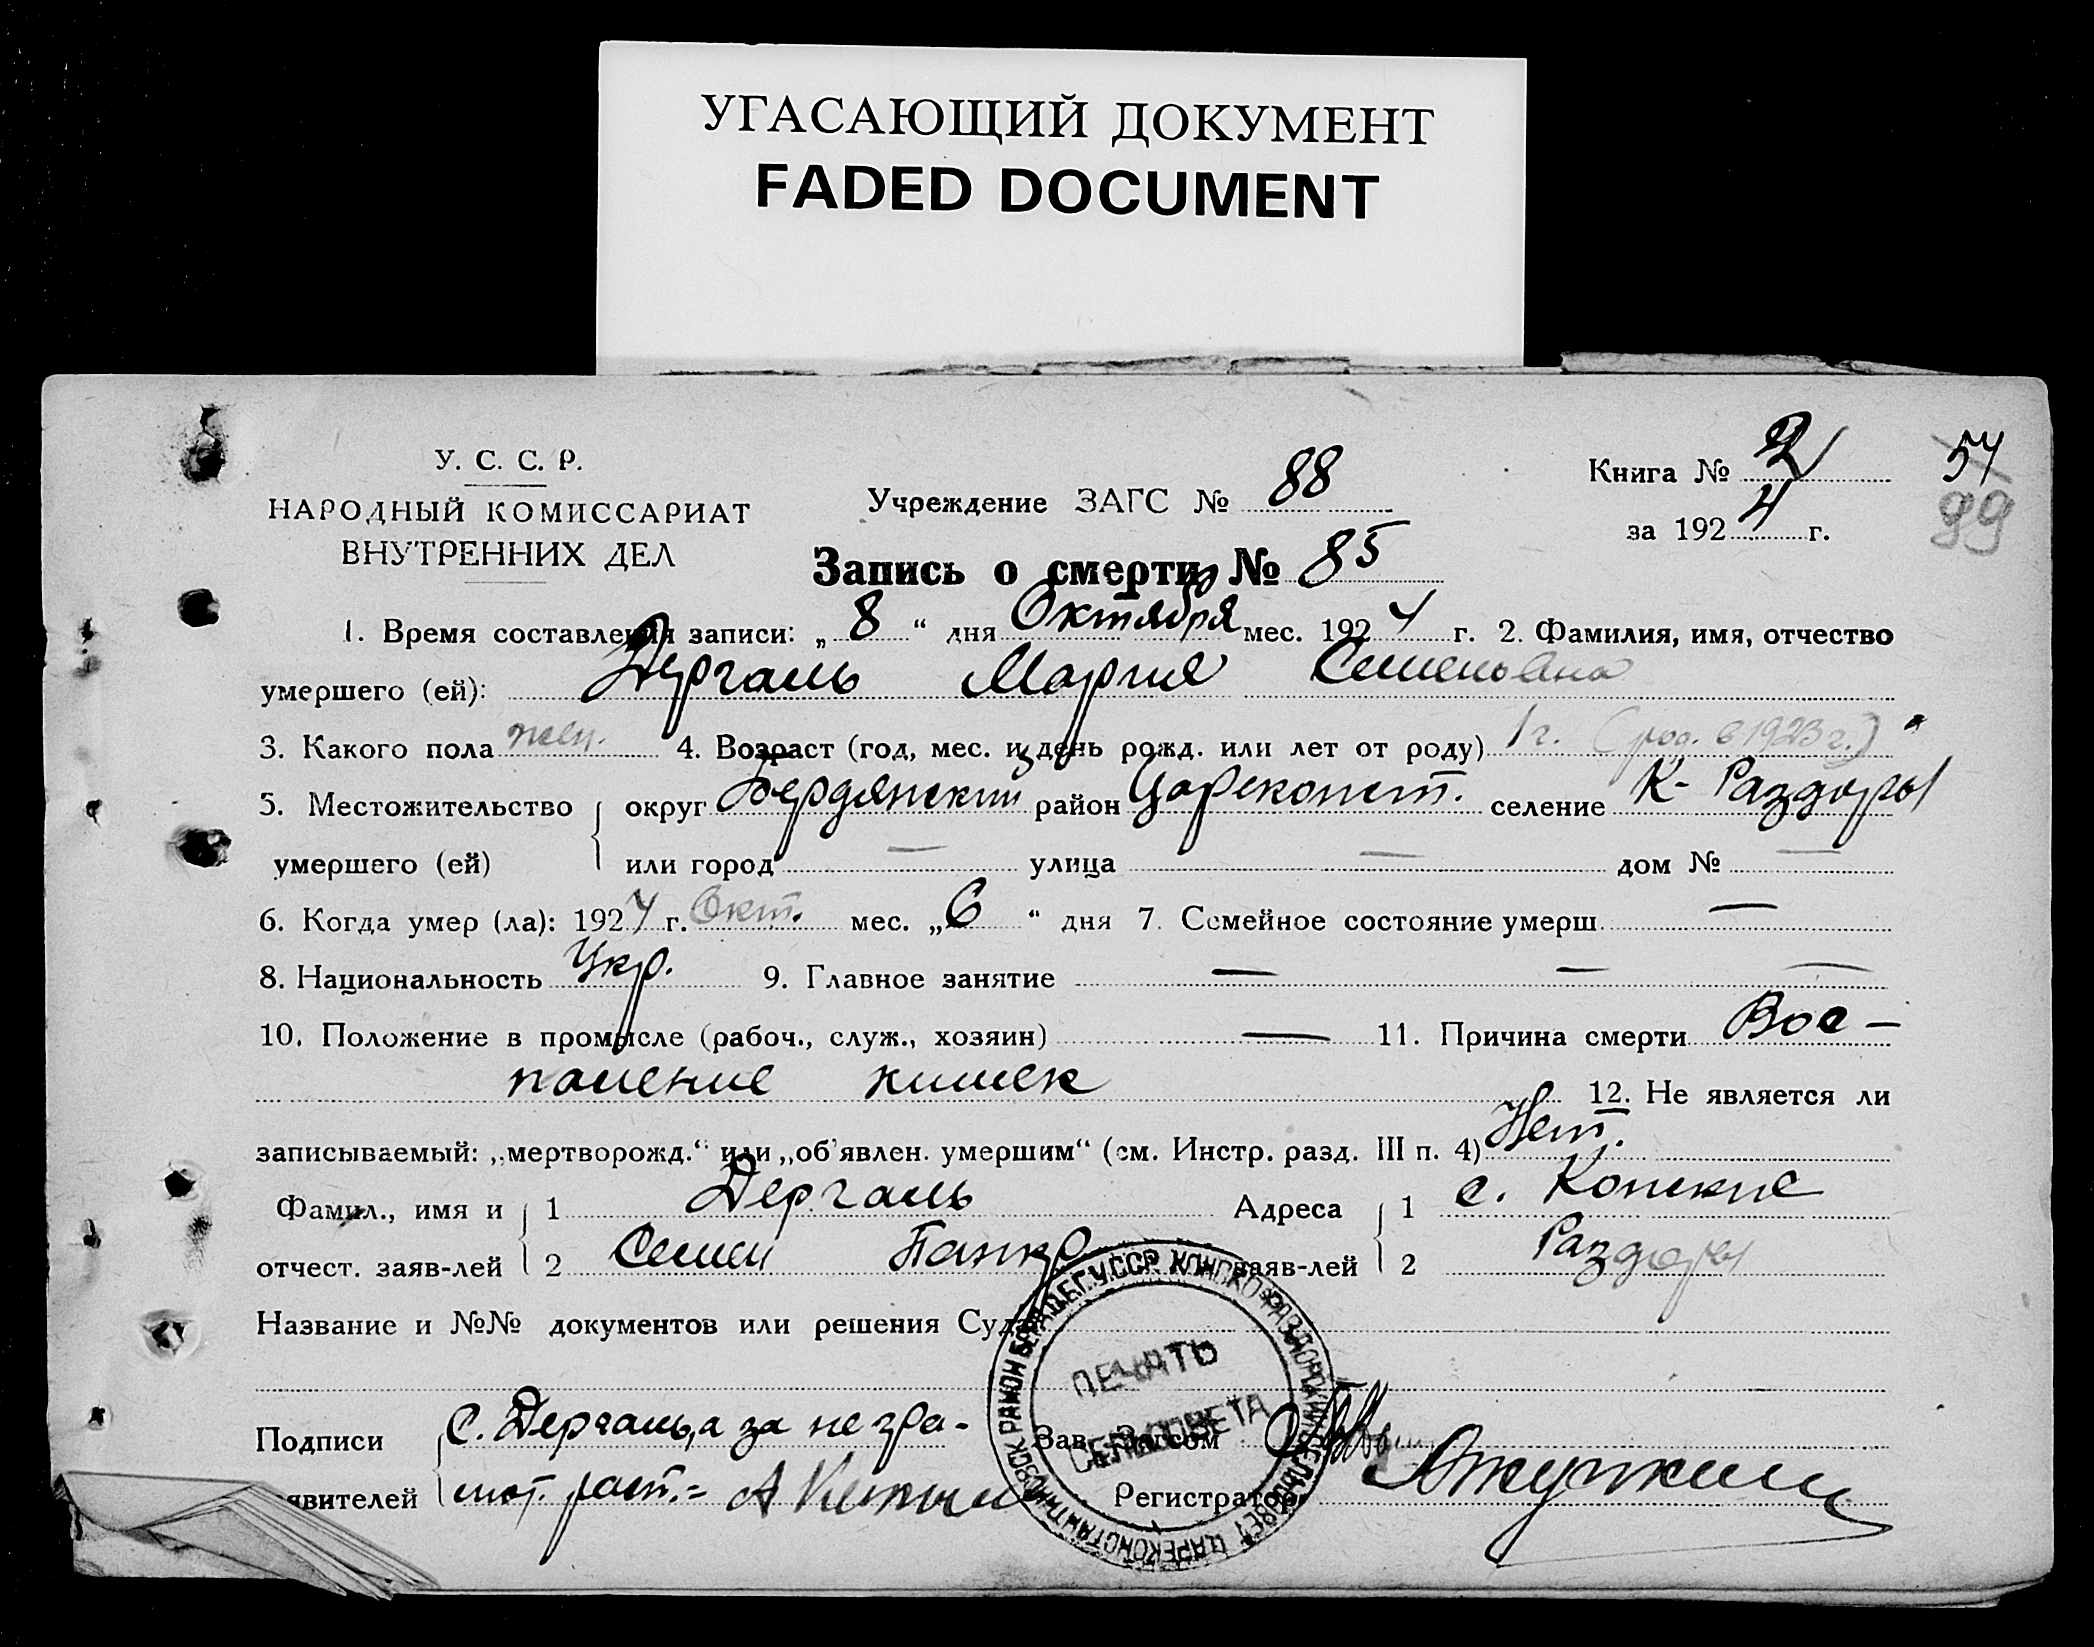 УГАСАЮЩИЙ ДОКУМЕНТ
FADED DOCUMENT
У. С. С. Р.
НАРОДНЫЙ КОМИССАРИАТ
ВНУТРЕННИХ ДЕЛ
Учреждение ЗАГС № 88
Книга № 2
за 1924 г.
54
99
Запись о смерти № 85
1. Время составления записи: „8“ дня Октября мес. 1924 г. 2. Фамилия, имя, отчество
умершего (ей): Дергаль Мария Семеновна
3. Какого пола жен. 4. Возраст (год, мес. и день рожд. или лет от роду) 1 г. (род. в 1923 г.)
5. Местожительство округ Бердянский район Цареконст. селение К-Раздоры
умершего (ей) или город — улица — дом № —
6. Когда умер (ла): 1924 г. Окт. мес. „6“ дня 7. Семейное состояние умерш. —
8. Национальность Укр. 9. Главное занятие — — —
10. Положение в промысле (рабоч., служ., хозяин) — 11. Причина смерти Вос-
паление кишек 12. Не является ли
записываемый: „мертворожд.“ или „об'явлен. умершим“ (см. Инстр. разд. III п. 4) Нет.
Фамил., имя и 1 Дергаль Адреса 1 с. Конские
отчест. заяв-лей 2 Семен Панкр заяв-лей 2 Раздоры
Название и №№ документов или решения Суда
Подписи С. Дергаль, а за негра- Зав. Загсом
явителей мот. расп.= А Регистратор
ПЕЧАТЬ
СЕЛЬСОВЕТА